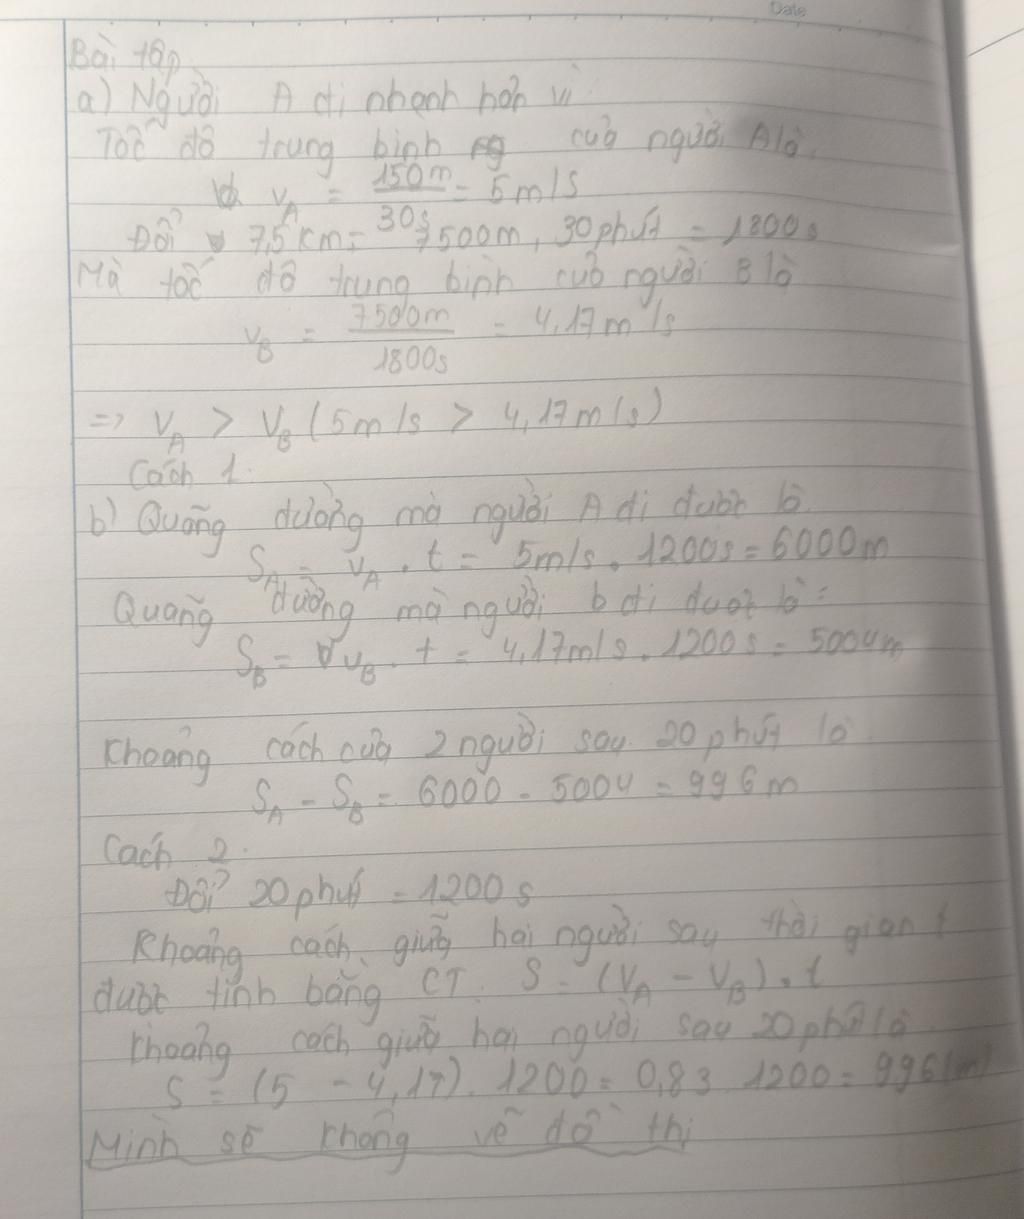 Date
Bài tập
a) Người A đi nhanh hơn vì
Tốc độ trung bình của người A là
v_A = 150m/30s = 5m/s
Đổi 7,5km = 7500m, 30 phút = 1800s
Mà tốc độ trung bình của người B là
v_B = 7500m/1800s = 4,17m/s
=> v_A > v_B (5m/s > 4,17m/s)
Cách 1:
b) Quãng đường mà người A đi được là
S_A = v_A . t = 5m/s . 1200s = 6000m
Quãng đường mà người b đi được là:
S_B = v_B . t = 4,17m/s . 1200s = 5004m
Khoảng cách của 2 người sau 20 phút là
S_A - S_B = 6000 - 5004 = 996m
Cách 2:
Đổi 20 phút = 1200s
Khoảng cách giữa hai người sau thời gian t
được tính bằng CT: S = (v_A - v_B) . t
Khoảng cách giữa hai người sau 20 phút là
S = (5 - 4,17) . 1200 = 0,83 1200 = 996(m)
Mình sẽ không vẽ đồ thị